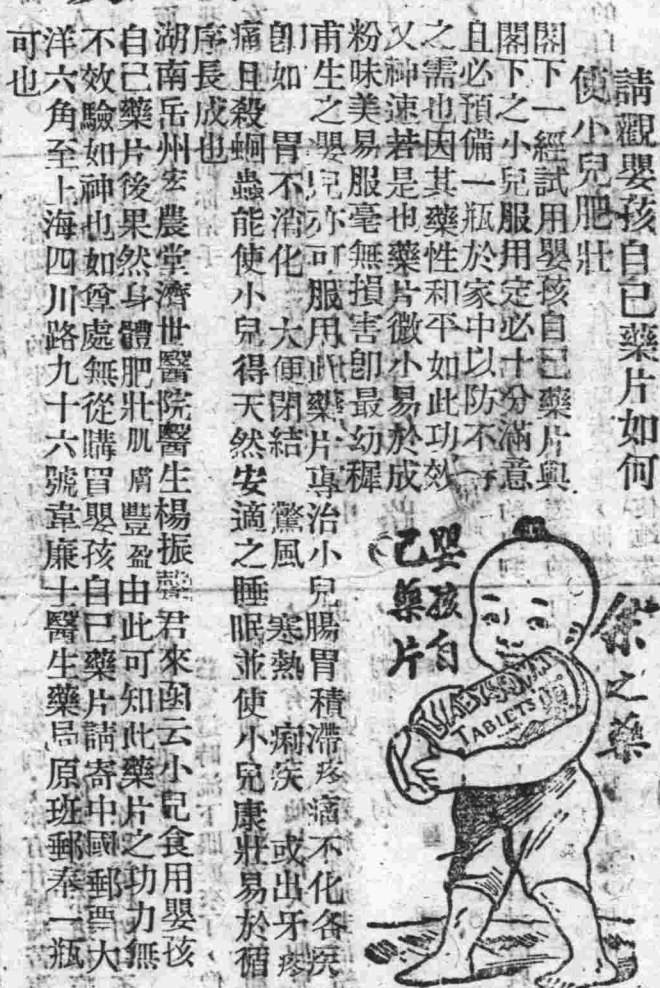 請觀嬰孩自己藥片如何
使小兒肥壯
閣下一經試用嬰孩自己藥片與
閣下之小兒服用定必十分滿意
且必預備一瓶於家中以防不時
之需也因其藥性和平如此功效
又神速若是也藥片微小易於成
粉味美易服毫無損害卽最幼穉
甫生之嬰兒亦可服用此藥片專治小兒腸胃積滯疼痛不化各疾
卽如 胃不消化 大便閉結 驚風 寒熱 痢疾 或出牙疼
痛且殺蛔蟲能使小兒得天然安適之睡眠並使小兒康壯易於循
序長成也
湖南岳州宏農堂濟世醫院醫生楊振聲君來函云小兒食用嬰孩
自己藥片後果然身體肥壯肌膚豐盈由此可知此藥片之功力無
不效驗如神也如尊處無從購買嬰孩自己藥片請寄中國郵票大
洋六角至上海四川路九十六號韋廉士醫生藥局原班郵奉一瓶
可也
余之藥
嬰孩自
己藥片
BABY'S OWN
TABLETS